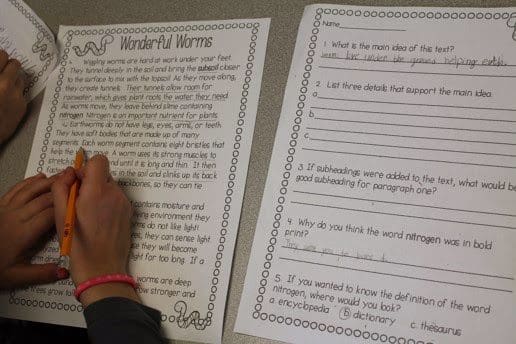 Wonderful Worms
Wiggling worms are hard at work under your feet.
They tunnel deeply in the soil and bring the subsoil closer
to the surface to mix with the topsoil. As they move along,
they create tunnels. Their tunnels allow room for
rainwater, which gives plant roots the water they need.
As worms move, they leave behind slime containing
nitrogen. Nitrogen is an important nutrient for plants.
Earthworms do not have legs, eyes, arms, or teeth.
They have soft bodies that are made up of many
segments. Each worm segment contains eight bristles that
help the worm move. A worm uses its strong muscles to
stretch and until it is long and thin. It then
in the soil and slinks up its back
backbones, so they can tie
contains moisture and
living environment they
worms do not like light!
eyes, they can sense light.
because they will become
light for too long. If a
worms are deep
grow to slower and stronger
Name
1. What is the main idea of this text?
worm live under the ground helping earth.
2. List three details that support the main idea.
a.
b.
c.
3. If subheadings were added to the text, what would be
good subheading for paragraph one?
4. Why do you think the word nitrogen was in bold
print?
5. If you wanted to know the definition of the word
nitrogen, where would you look?
a. encyclopedia b. dictionary c. thesaurus